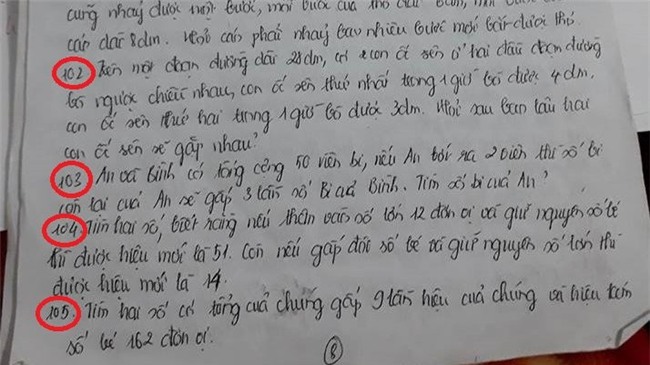 cũng nhảy được một bước, mỗi bước của thỏ
cáo dài 8dm. Hỏi cáo phải nhảy bao nhiêu bước mới bắt được thỏ
102 Trên một đoạn đường dài 28dm, có 2 con ốc sên ở hai đầu đoạn đường
bò ngược chiều nhau, con ốc sên thứ nhất trong 1 giờ bò được 4dm.
con ốc sên thứ hai trong 1 giờ bò được 3dm. Hỏi sau bao lâu hai
con ốc sên sẽ gặp nhau?
103 An và Bình có tổng cộng 50 viên bi, nếu An bớt ra 2 viên thì số bi
còn lại của An sẽ gấp 3 lần số bi của Bình. Tìm số bi của An?
104 Tìm hai số, biết rằng nếu thêm vào số lớn 12 đơn vị và giữ nguyên số bé
thì được hiệu mới là 51. Còn nếu gấp đôi số bé và giữ nguyên số lớn thì
được hiệu mới là 14.
105. Tìm hai số có tổng của chúng gấp 9 lần hiệu của chúng và hiệu kém
số bé 162 đơn vị.
8